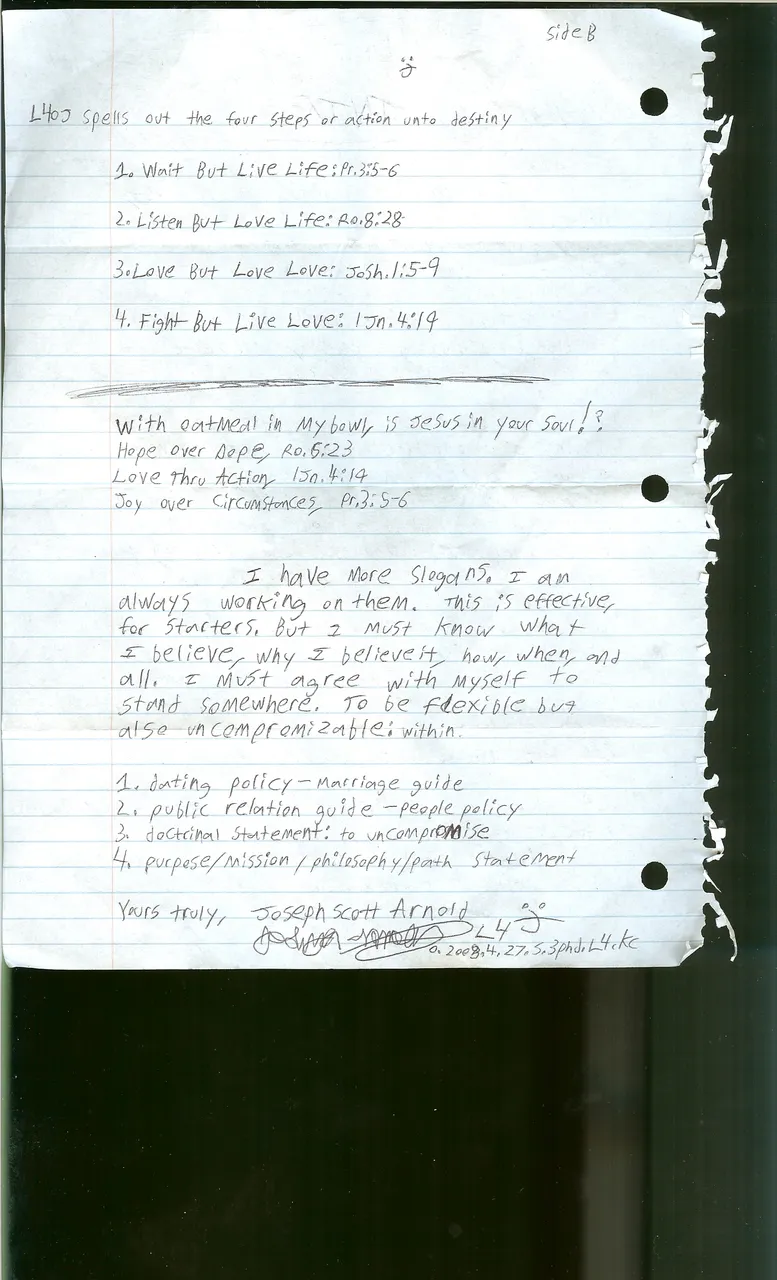 side B
L4oJ spells out the four steps or action unto destiny
1. Wait But Live Life: Pr.3:5-6
2. Listen But Love Life: Ro.8:28
3. Love But Love Love: Josh.1:5-9
4. Fight But Live Love: 1Jn.4:19
With oatmeal in My bowl, is Jesus in your soul!?
Hope over Dope, Ro.6:23
Love thru Action, 1Jn.4:19
Joy over Circumstances, Pr.3:5-6
I have More slogans. I am
always working on them. This is effective,
for starters. But I Must know what
I believe, why I believe it, how, when, and
all. I Must agree with Myself to
stand somewhere. To be flexible but
also uncompromizable: within.
1. dating policy - Marriage guide
2. public relation guide - people policy
3. doctrinal statement: to uncompromise
4. purpose/Mission/philosophy/path statement
Yours truly, Joseph Scott Arnold
L4J
0.2008.4.27.S.3phd.L4.KC